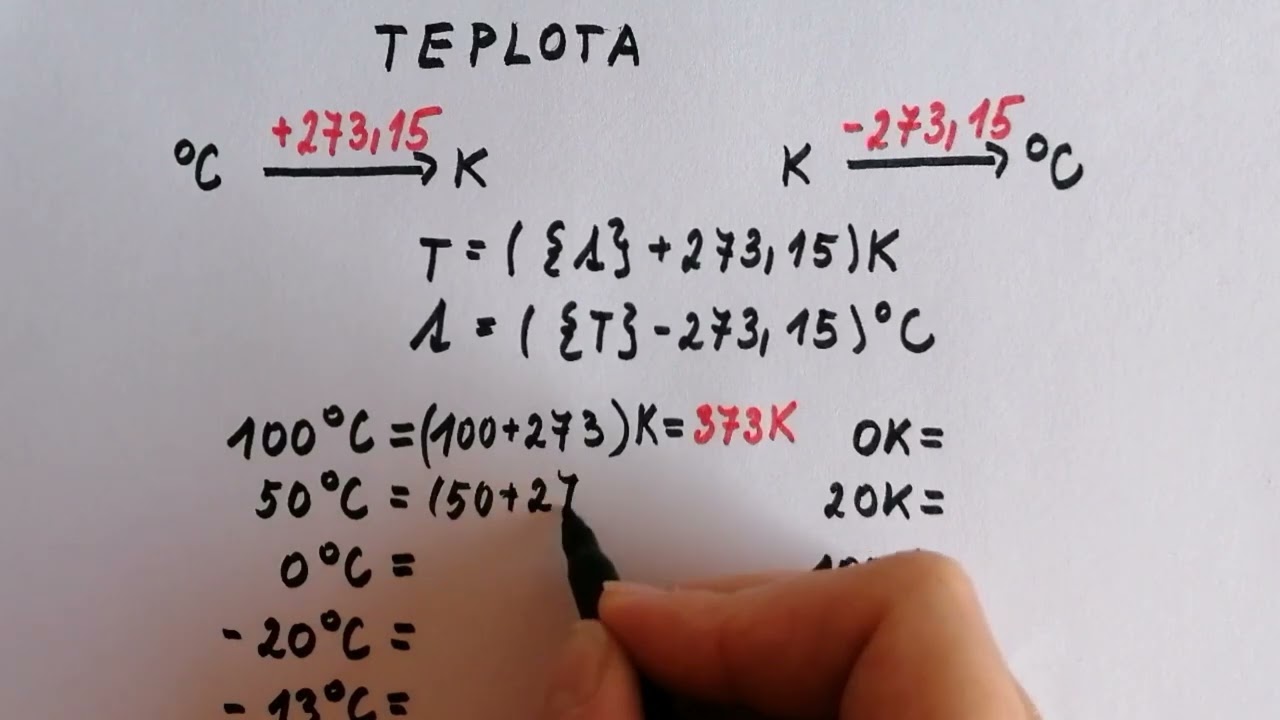 TEPLOTA
°C +273,15 → K
K -273,15 → °C
T = ({t} + 273,15)K
t = ({T} - 273,15)°C
100°C = (100+273)K = 373K
0K =
50°C = (50+27
20K =
0°C =
- 20°C =
- 13°C =